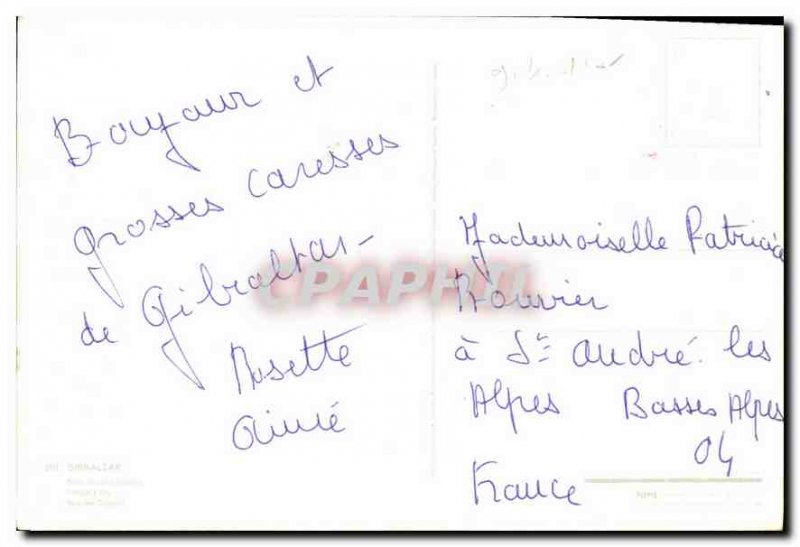 Bonjour et
grosses caresses
de Gibraltar -
Rosette
Aimé
Mademoiselle Patricia
Bouvier
à St André les
Alpes Basses Alpes
04
France
GIBRALTAR
CPAPHIL